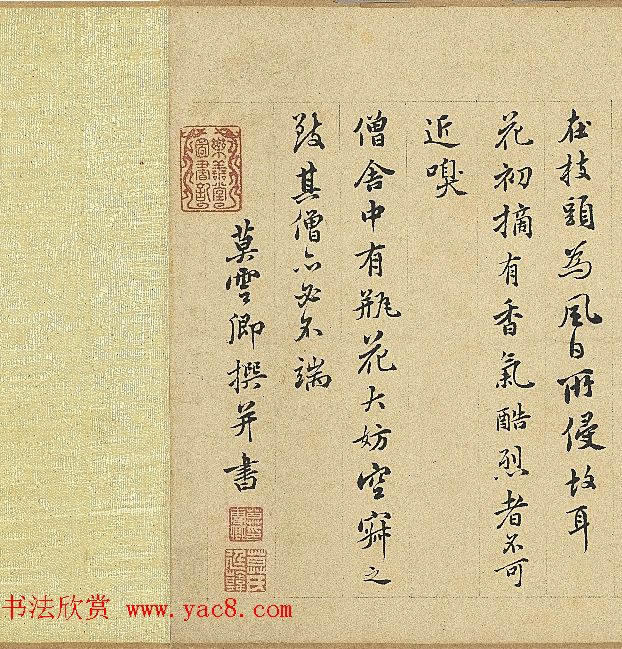 在枝頭為風日所侵故耳
花初摘有香氣酷烈者不可
近嗅
僧舍中有瓶花大妨空寂之
致其僧亦必不端
莫雲卿撰并書
樂善堂圖書記
书法欣赏 www.yac8.com